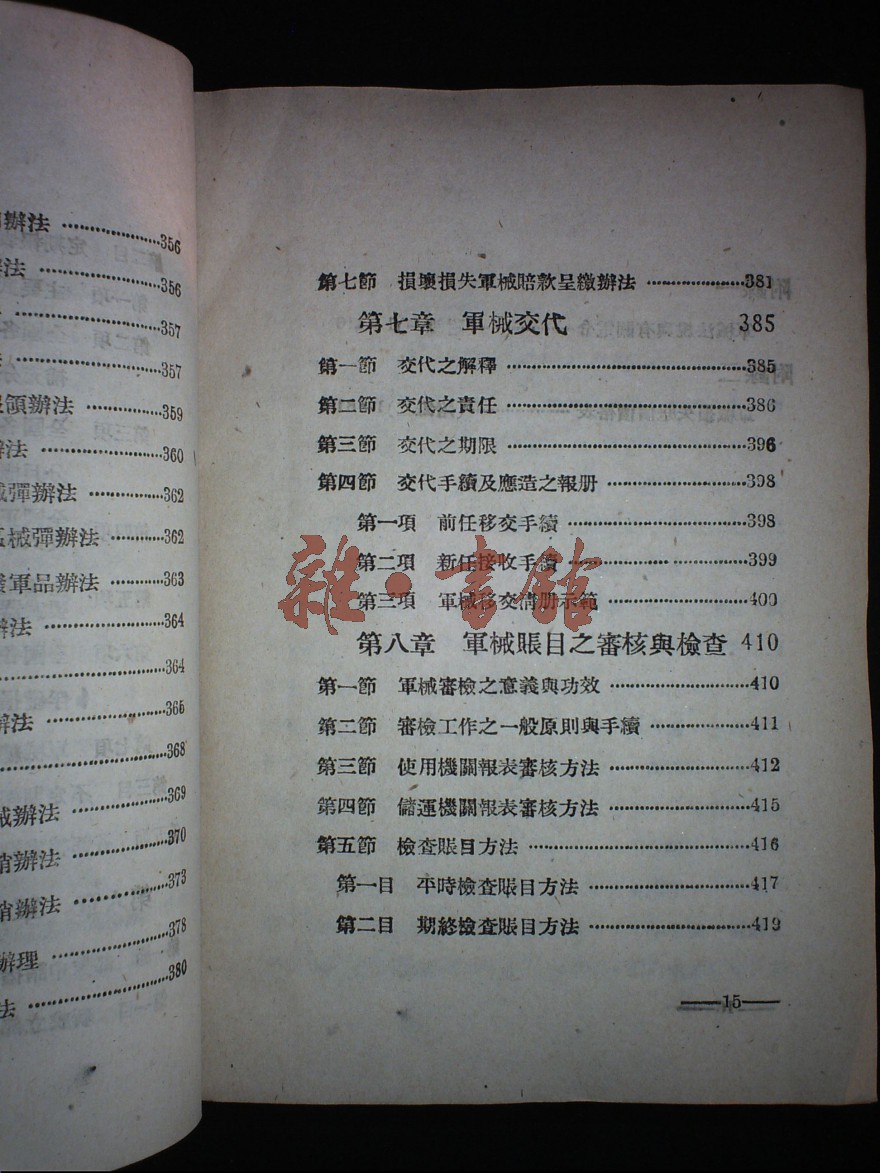 辦法 356
辦法 356
357
357
領辦法 359
辦法 360
彈辦法 362
械彈辦法 362
軍品辦法 363
辦法 364
364
辦法 365
368
械辦法 369
辦法 370
辦法 373
辦理 378
法 380
第七節 損壞損失軍械賠款呈繳辦法 381
第七章 軍械交代 385
第一節 交代之解釋 385
第二節 交代之責任 386
第三節 交代之期限 396
第四節 交代手續及應造之報册 398
第一項 前任移交手續 398
第二項 新任接收手續 399
第三項 軍械移交清册示範 400
雜·書館
第八章 軍械賬目之審核與檢查 410
第一節 軍械審檢之意義與功效 410
第二節 審檢工作之一般原則與手續 411
第三節 使用機關報表審核方法 412
第四節 儲運機關報表審核方法 415
第五節 檢查賬目方法 416
第一目 平時檢查賬目方法 417
第二目 期終檢查賬目方法 419
15